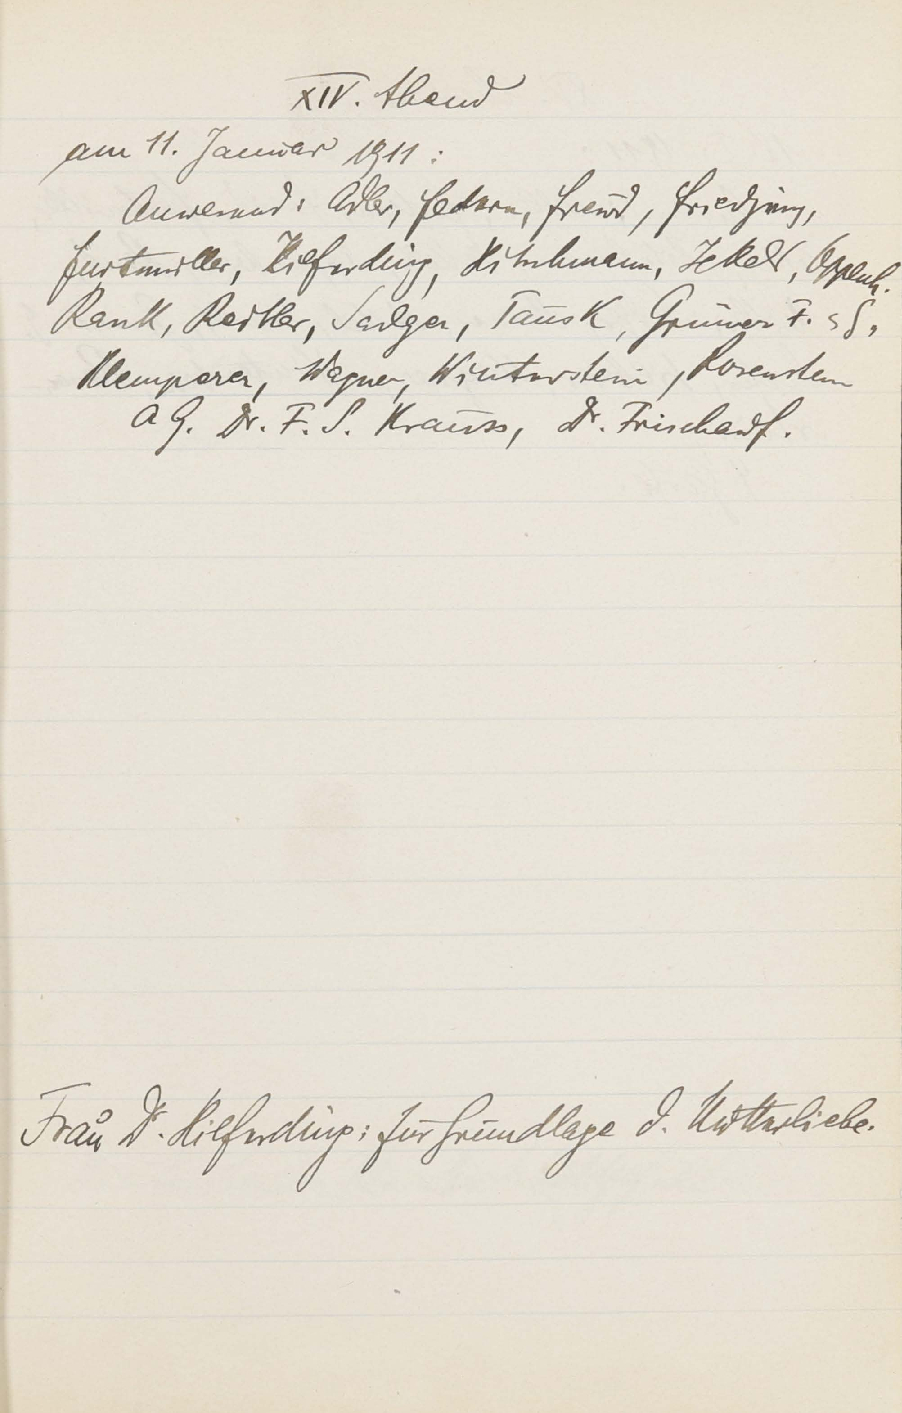 XIV. Abend
am 11. Januar 1911:
Anwesend: Adler, Federn, Freud, Friedjung,
Furtmüller, Hilferding, Hitschmann, Jekels, Oppenh.
Rank, Reitler, Sadger, Tausk, Grüner F. u G.,
Klemperer, Wagner, Winterstein, Rosenstein
a G. Dr. F. S. Krauss, Dr. Frischauf.
Frau Dr. Hilferding: Zur Grundlage d. Mutterliebe.